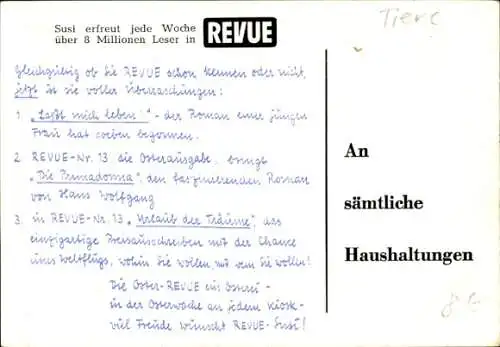 Susi erfreut jede Woche
über 8 Millionen Leser in REVUE
Tiere
Gleichgültig ob Sie REVUE schon kennen oder nicht,
jetzt ist sie voller Überraschungen:
1. "Laßt mich leben!" - der Roman einer jungen
Frau hat soeben begonnen.
2. REVUE-Nr. 13 die Osterausgabe, bringt
"Die Primadonna", den faszinierenden Roman
von Hans Wolfgang
3. in REVUE-Nr. 13 "Urlaub der Träume", das
einzigartige Preisausschreiben mit der Chance
eines Weltflugs, wohin Sie wollen mit wem Sie wollen!
Die Oster-REVUE ein Osterei -
in der Osterwoche an jedem Kiosk -
viel Freude wünscht REVUE-Susi!
An
sämtliche
Haushaltungen